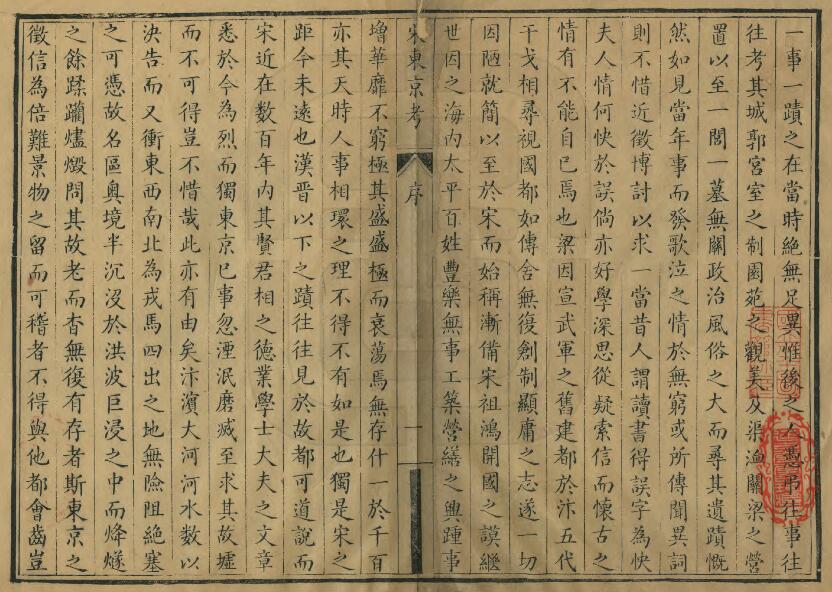 一事一蹟之在當時絶無足異惟後之人憑弔往事往
往考其城郭宮室之制園苑之觀美及渠漁關梁之營
置以至一閭一墓無關政治風俗之大而尋其遺蹟慨
然如見當年事而發歌泣之情於無窮或所傳聞異詞
則不惜近徵博討以求一當昔人謂讀書得誤字為快
夫人情何快於誤倘亦好學深思從疑索信而懷古之
情有不能自已焉也梁因宣武軍之舊建都於汴五代
干戈相尋視國都如傳舍無復創制顯庸之志遂一切
因陋就簡以至於宋而始稱漸備宋祖鴻開國之謨繼
世因之海内太平百姓豐樂無事工築營繕之興踵事
宋東京考 序 一
增華靡不窮極其盛盛極而衰蕩焉無存什一於千百
亦其天時人事相環之理不得不有如是也獨是宋之
距今未遠也漢晋以下之蹟往往見於故都可道説而
宋近在数百年内其賢君相之德業學士大夫之文章
悉於今為烈而獨東京巳事忽湮泯磨滅至求其故墟
而不可得豈不惜哉此亦有由矣汴濱大河河水数以
決告而又衝東西南北為戎馬四出之地無險阻絶塞
之可憑故名區奥境半沉没於洪波巨浸之中而烽燧
之餘蹂躪燼燬問其故老而杳無復有存者斯東京之
徵信為倍難景物之留而可稽者不得與他都會齒豈